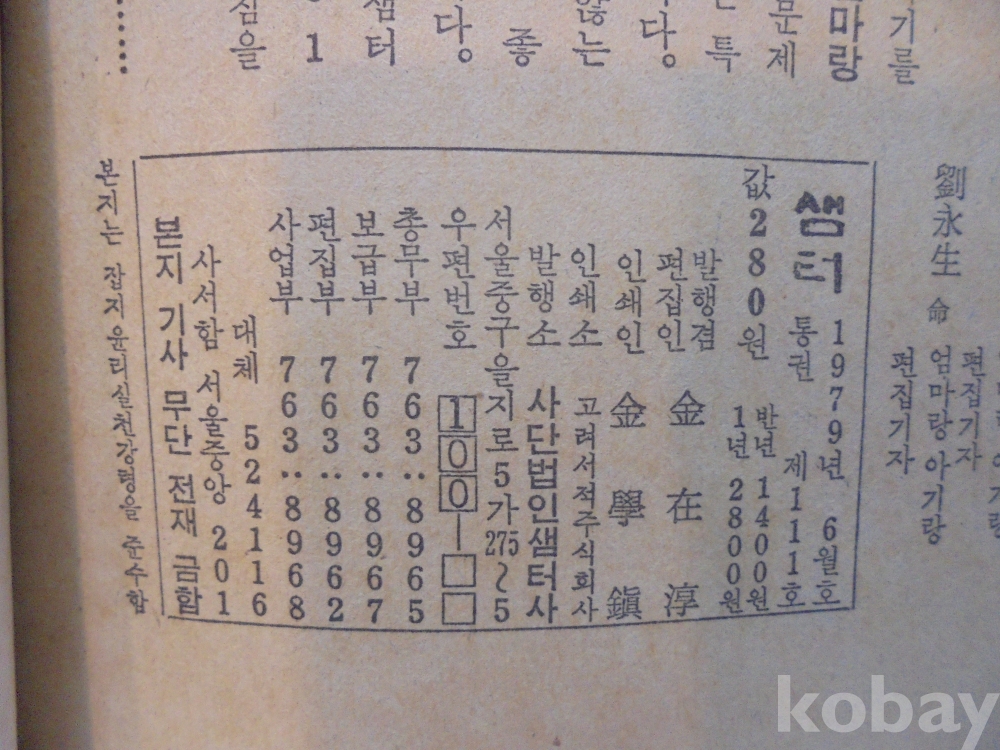 기를
마랑
문제
특
다.
않는
좋
다.
샘터
1
심을
劉永生 命
편집기자
엄마랑 아기랑
편집기자
샘터 1979년 6월호
통권 제111호
값 280원
반년 1400원
1년 2800원
발행겸
편집인 金在淳
인쇄인 金學鎭
인쇄소 고려서적주식회사
발행소 사단법인샘터사
서울중구을지로5가275~5
우편번호 100-□□
총무부 763··8965
보급부 763··8967
편집부 763··8962
사업부 763··8968
대체 524116
사서함 서울중앙 201
본지 기사 무단 전재 금함
본지는 잡지윤리실천강령을 준수함
kobay